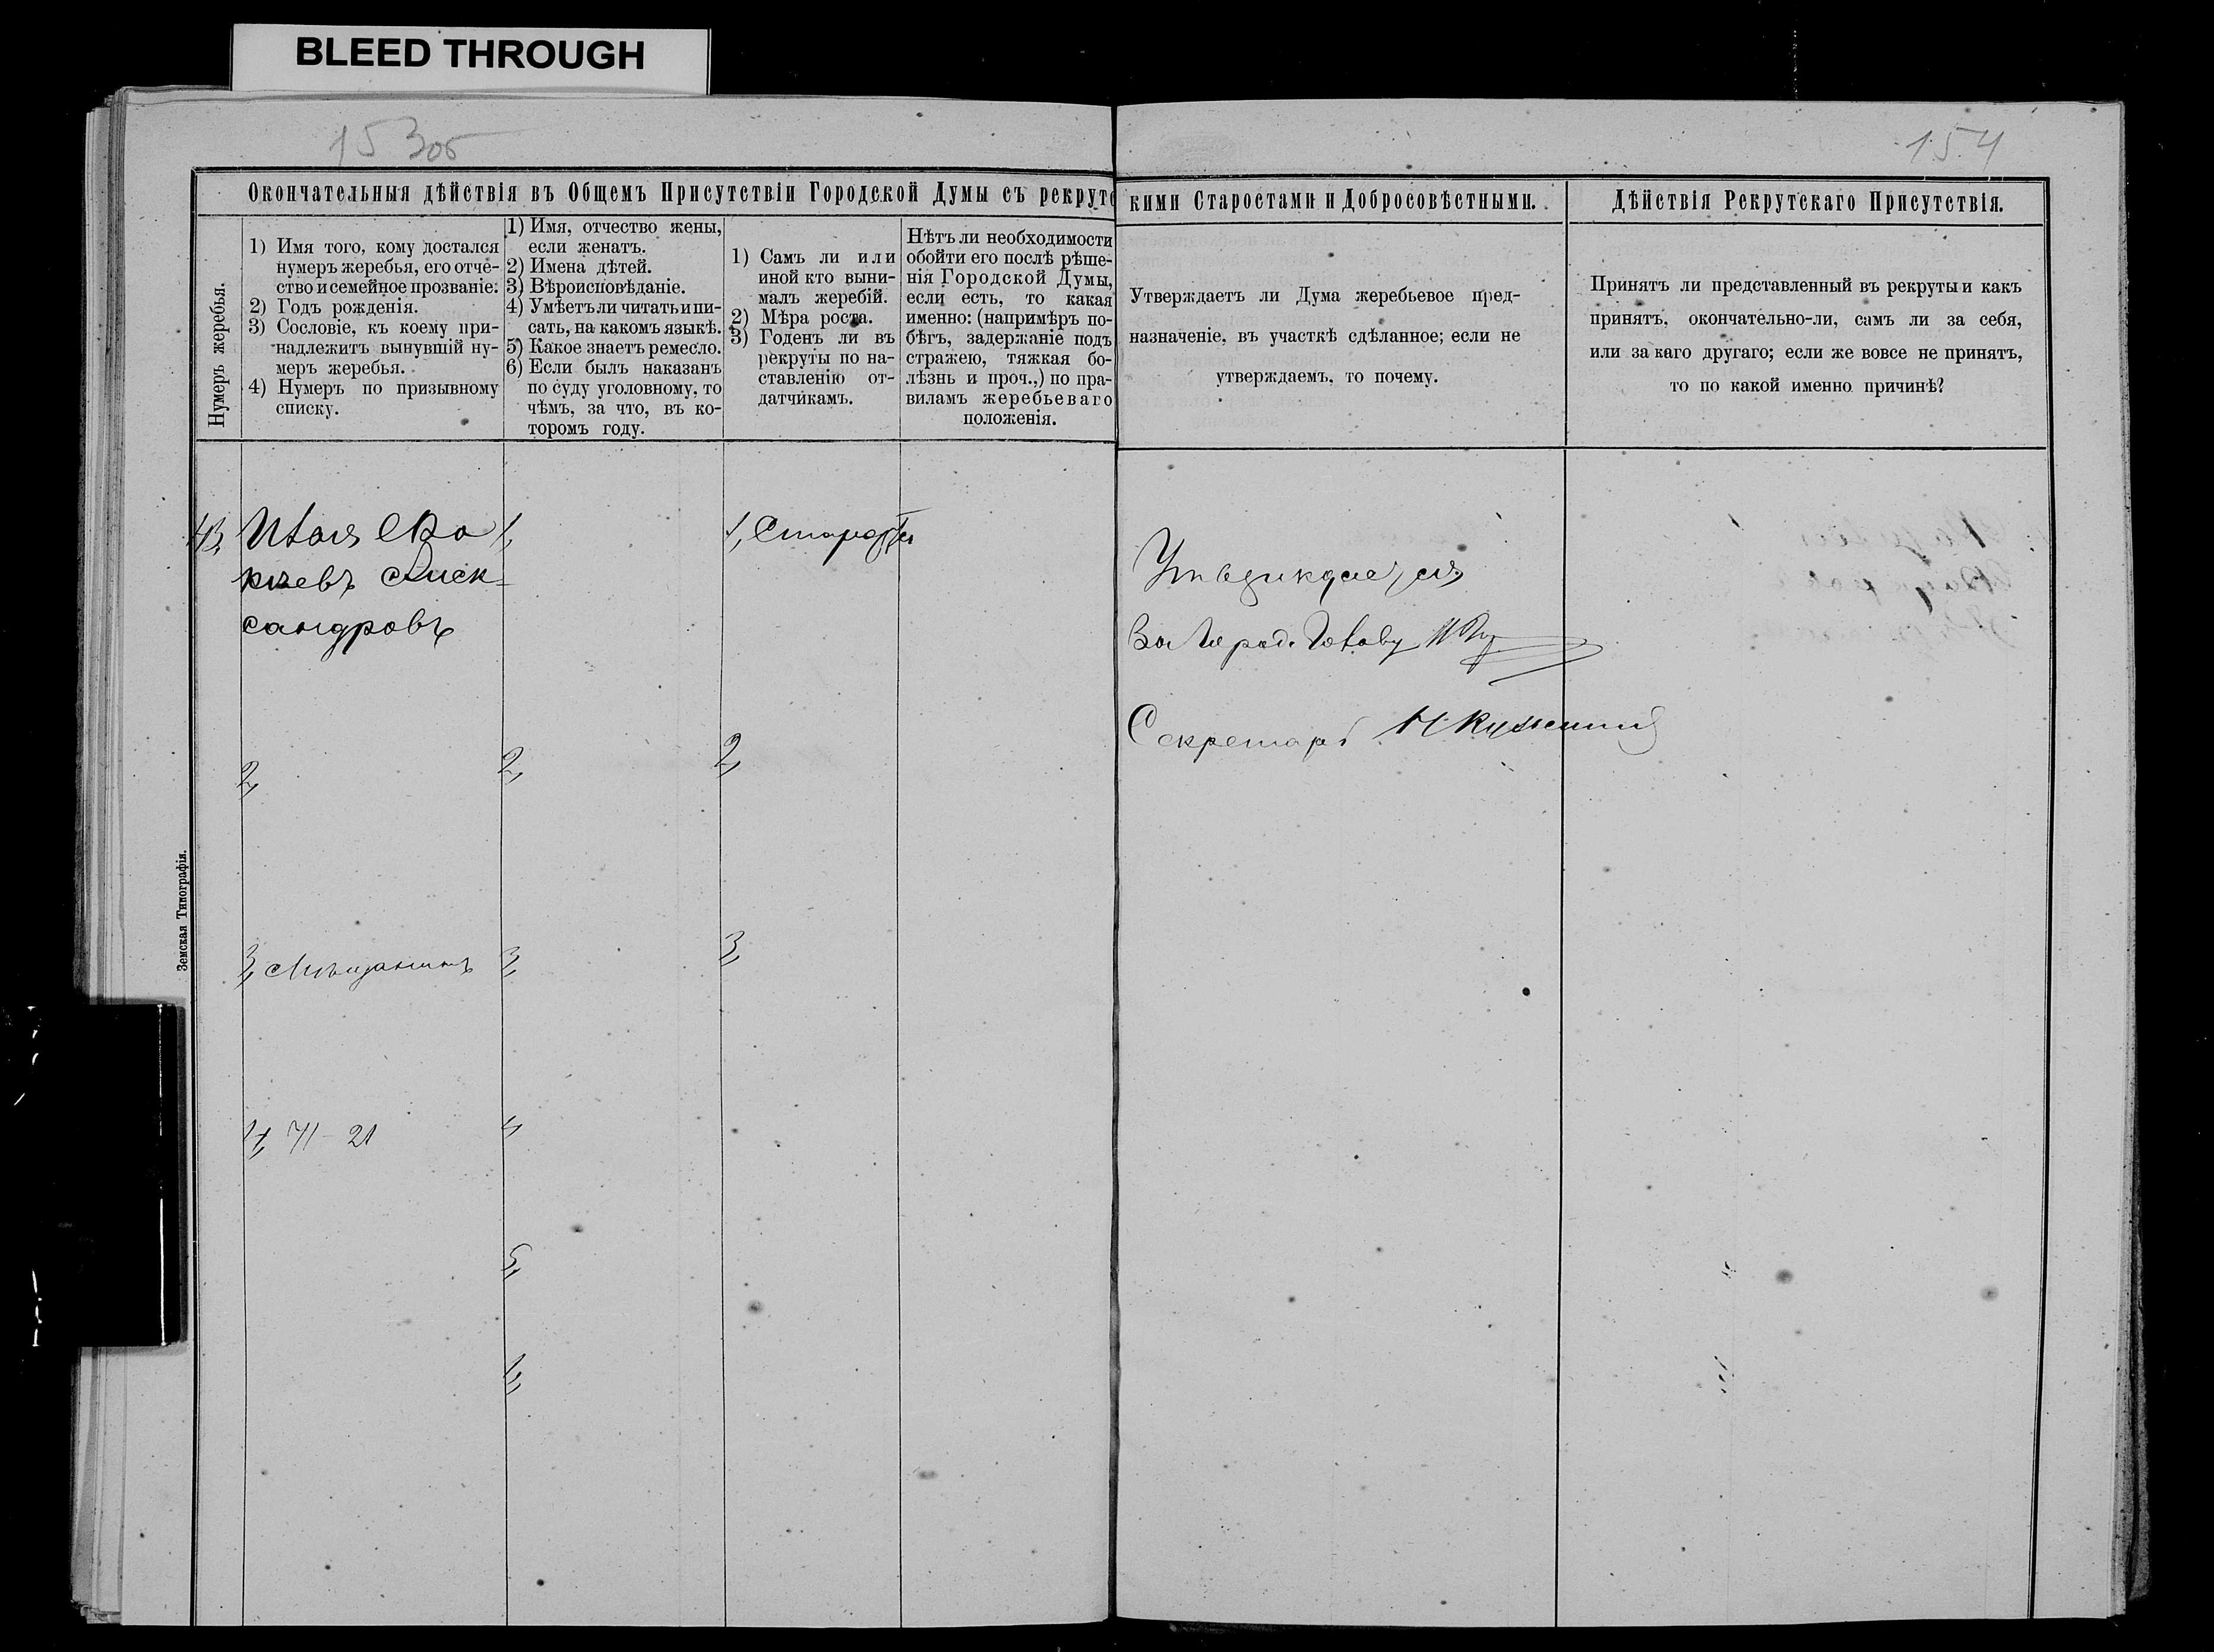 BLEED THROUGH
153об
154
Окончательныя дѣйствія въ Общемъ Присутствіи Городской Думы съ рекрутс
кими Старостами и Добросовѣстными.
Дѣйствія Рекрутскаго Присутствія.
Нумеръ жеребья.
1) Имя того, кому достался
нумеръ жеребья, его отче-
ство и семейное прозваніе.
2) Годъ рожденія.
3) Сословіе, къ коему при-
надлежитъ вынувшій ну-
меръ жеребья.
4) Нумеръ по призывному
списку.
1) Имя, отчество жены,
если женатъ.
2) Имена дѣтей.
3) Вѣроисповѣданіе.
4) Умѣетъ ли читать и пи-
сать, на какомъ языкѣ.
5) Какое знаетъ ремесло.
6) Если былъ наказанъ
по суду уголовному, то
чѣмъ, за что, въ ко-
торомъ году.
1) Самъ ли или
иной кто выни-
малъ жеребій.
2) Мѣра роста.
3) Годенъ ли въ
рекруты по на-
ставленію от-
датчикамъ.
Нѣтъ ли необходимости
обойти его послѣ рѣше-
нія Городской Думы,
если есть, то какая
именно: (напримѣръ по-
бѣгъ, задержаніе подъ
стражею, тяжкая бо-
лѣзнь и проч.,) по пра-
виламъ жеребьеваго
положенія.
Утверждаетъ ли Дума жеребьевое пред-
назначеніе, въ участкѣ сдѣланное; если не
утверждаемъ, то почему.
Принятъ ли представленный въ рекруты и какъ
принятъ, окончательно-ли, самъ ли за себя,
или за каго другаго; если же вовсе не принятъ,
то по какой именно причинѣ?
43,
Иванъ
сандровъ
2,
3, Мѣщанинъ
4, 71 - 21
1,
2,
3,
4,
5,
6,
1, Староста
2,
3,
Утверждается
За Город. Голову
Секретарь
Земская Типографія.